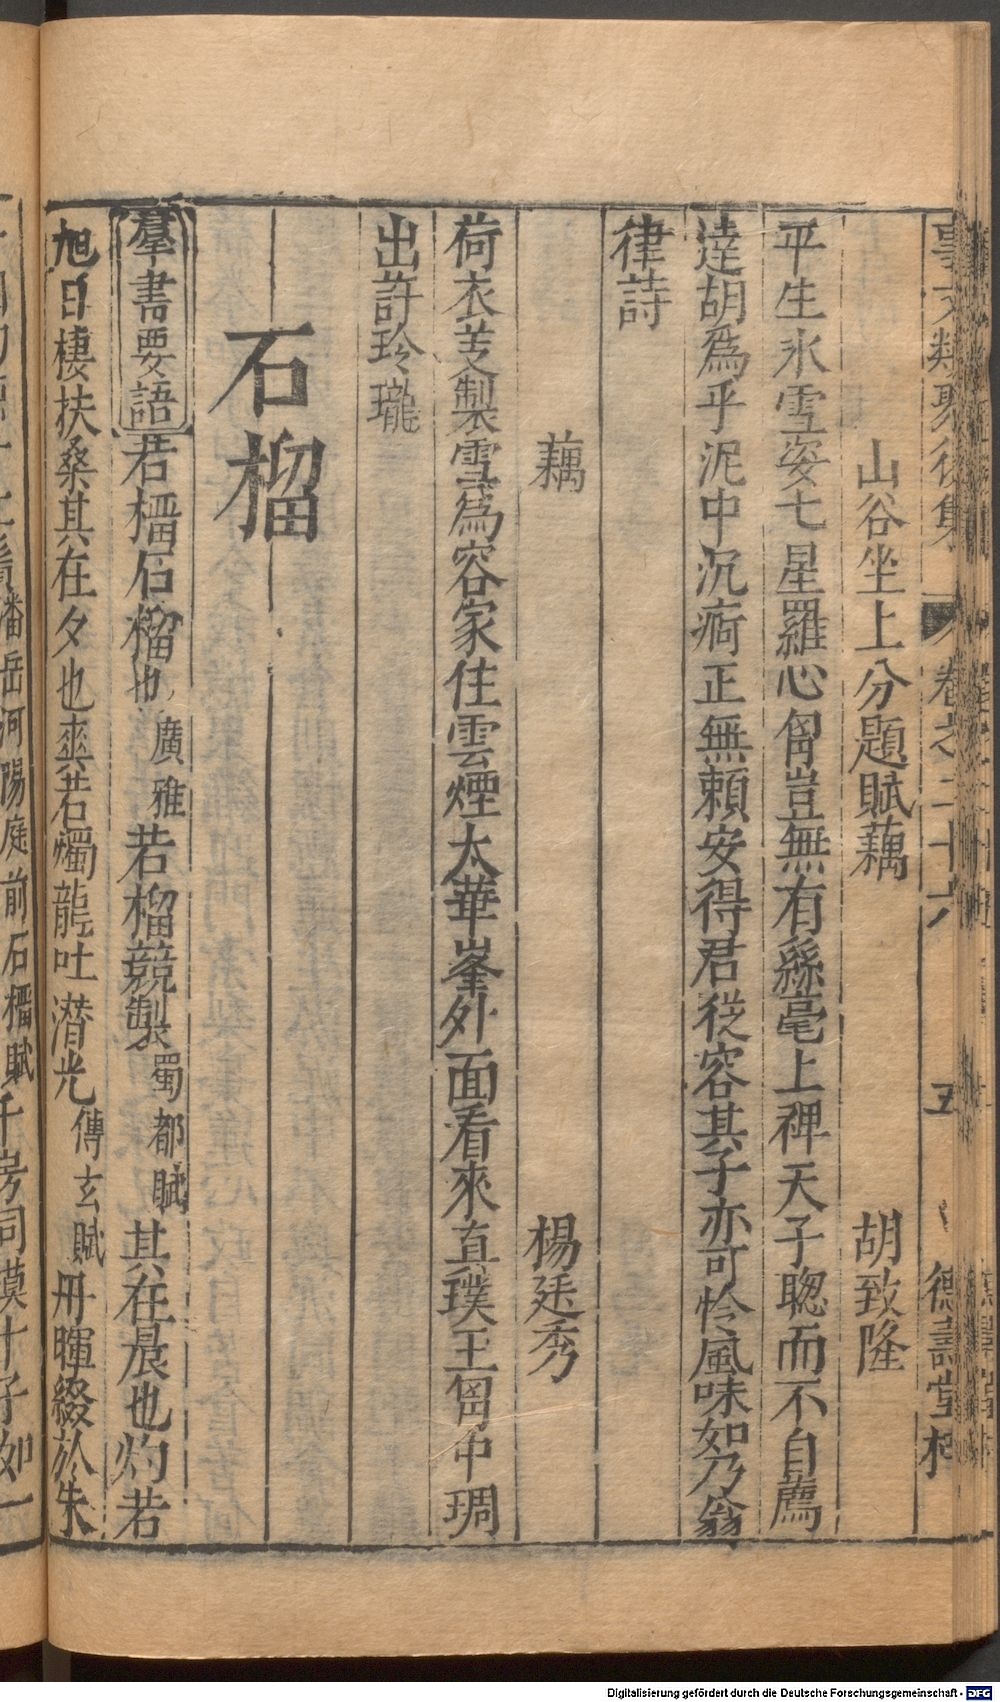 事文類聚後集 卷之二十六 五 德壽堂梓
山谷坐上分題賦藕 胡致隆
平生氷雪姿七星羅心胷豈無有絲毫上禆天子聰而不自薦
達胡爲乎泥中沉痾正無頼安得君從容其子亦可怜風味如乃翁
律詩
藕 楊廷秀
荷衣芰製雪爲容家住雲煙太華峯外面看來真璞玉胷中琱
出許玲瓏
石榴
羣書要語 若橊石榴也 廣雅 若榴競製 蜀都賦 其在晨也灼若
旭日棲扶桑其在夕也奭若燭龍吐潜光 傅玄賦 丹暉綴於朱
潘岳河陽庭前石橊賦 千房同漠十子如一
Digitalisierung gefördert durch die Deutsche Forschungsgemeinschaft - DFG